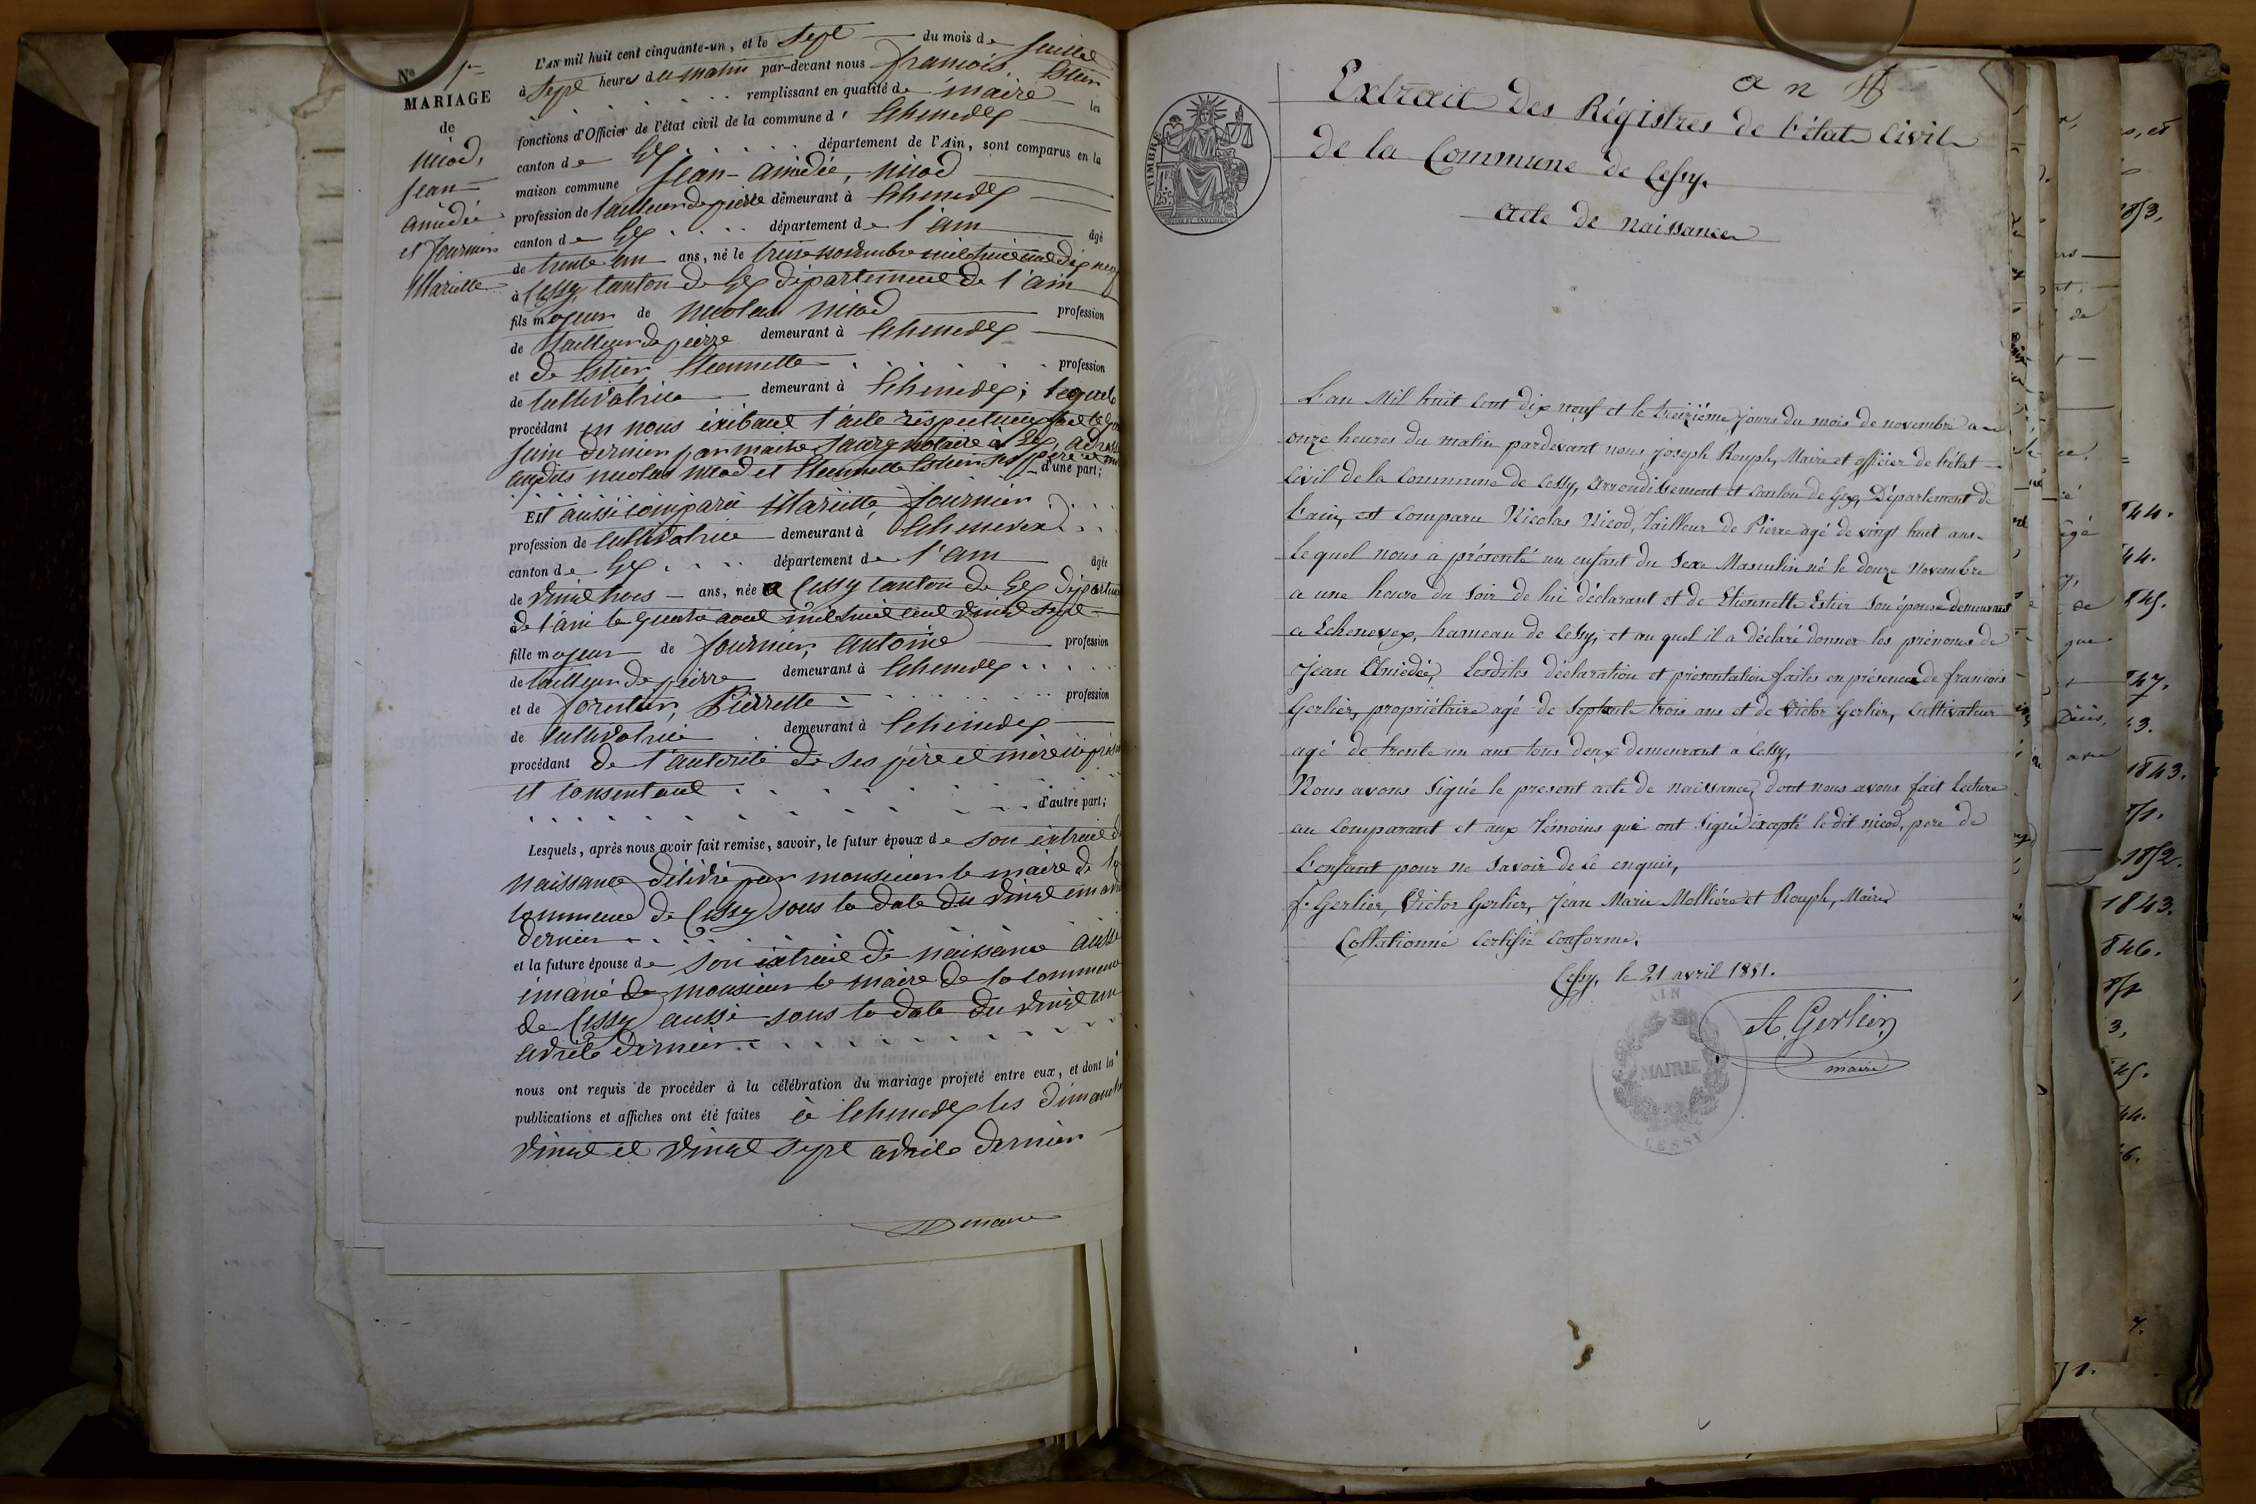 N° 1er
MARIAGE
de
nicod,
jean
amédée
et fournier
Mariette
L'AN mil huit cent cinquante-un, et le sept du mois de juillet
à sept heures du matin par-devant nous françois Estier
remplissant en qualité de maire les
fonctions d'Officier de l'état civil de la commune d' Echenevex
canton de Gex département de l'Ain, sont comparus en la
maison commune Jean-amédée, nicod
profession de tailleur de pierre demeurant à Echenevex
canton de Gex département de l'ain âgé
de trente un ans, né le treize novembre mil huit cent dix neuf
à Cessy, canton de Gex département de l'ain
fils majeur de nicolas nicod profession
de tailleur de pierre demeurant à Echenevex
et de Estier, Etiennette profession
de cultivatrice demeurant à Echenevex; lequel
procédant en nous exibant l'acte respectueux fait le
juin dernier par maitre notaire à Gex
auxdits nicolas nicod et Etiennette Estier ses père et
d'une part;
EST aussi comparu Mariette fournier
profession de cultivatrice demeurant à Echenevex
canton de Gex département de l'ain âgée
de vingt trois ans, née à Cessy canton de Gex
de l'ain le quatre aout mil huit cent vingt sept
fille majeur de fournier, antoine profession
de tailleur de pierre demeurant à Echenevex
et de forestier, Pierrette profession
de cultivatrice demeurant à Echenevex
procédant de l'autorité de ses père et mère ici
et consentant
d'autre part;
Lesquels, après nous avoir fait remise, savoir, le futur époux de son extrait de
naissance délivré par monsieur le maire de la
commune de Cessy sous la date du vingt un
dernier
et la future épouse de son extrait de naissance aussi
émané de monsieur le maire de la commune
de Cessy aussi sous la date du vingt un
avrile dernier
nous ont requis de procéder à la célébration du mariage projeté entre eux, et dont les
publications et affiches ont été faites à Echenevex les dimanche
vingt et vingt sept avrile dernier
maire
an
Extrait des Régistres de l'état Civil
de la Commune de Cessy.
acte de naissance
TIMBRE
L'an Mil huit cent dix neuf et le treizième jours du mois de novembre a
onze heures du matin pardevant nous joseph Rouph, Maire et officier de l'état
civil de la commune de Cessy, arrondissement et canton de Gex, Département de
l'ain, est comparu Nicolas Nicod, Tailleur de Pierre agé de vingt huit ans
lequel nous a présenté un enfant du Sexe Masculin né le douze Novembre
a une heure du soir de lui déclarant et de Etiennette Estier son épouse demeurant
a Echenevex, hameau de Cessy, et au quel il a déclaré donner les prénoms de
Jean Amédée, Lesdites déclaration et présentation faites en présence de françois
Gerlier, propriétaire agé de Septante trois ans et de Victor Gerlier, Cultivateur
agé de trente un ans tous deux demeurant a Cessy,
Nous avons signé le present acte de naissance, dont nous avons fait lecture
au comparant et aux Témoins qui ont signé excepté le dit nicod, pere de
l'enfant pour ne savoir de ce enquis,
f. Gerlier, Victor Gerlier, Jean Marie Mollière et Rouph, Maire
Collationné Certifié conforme.
Cessy, le 21 avril 1851.
A. Gerlier
maire
AIN
MAIRIE
CESSY